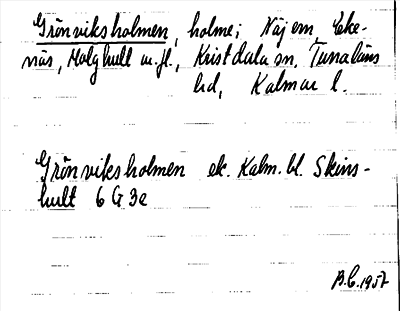 Grönviksholmen, holme; Näjern, Eke-
näs, Malghult m.fl., Kristdala sn, Tunaläns
hd, Kalmar l.
Grönviksholmen ek. Kalm. bl. Skins-
hult 6 G 3e
B.C. 1957